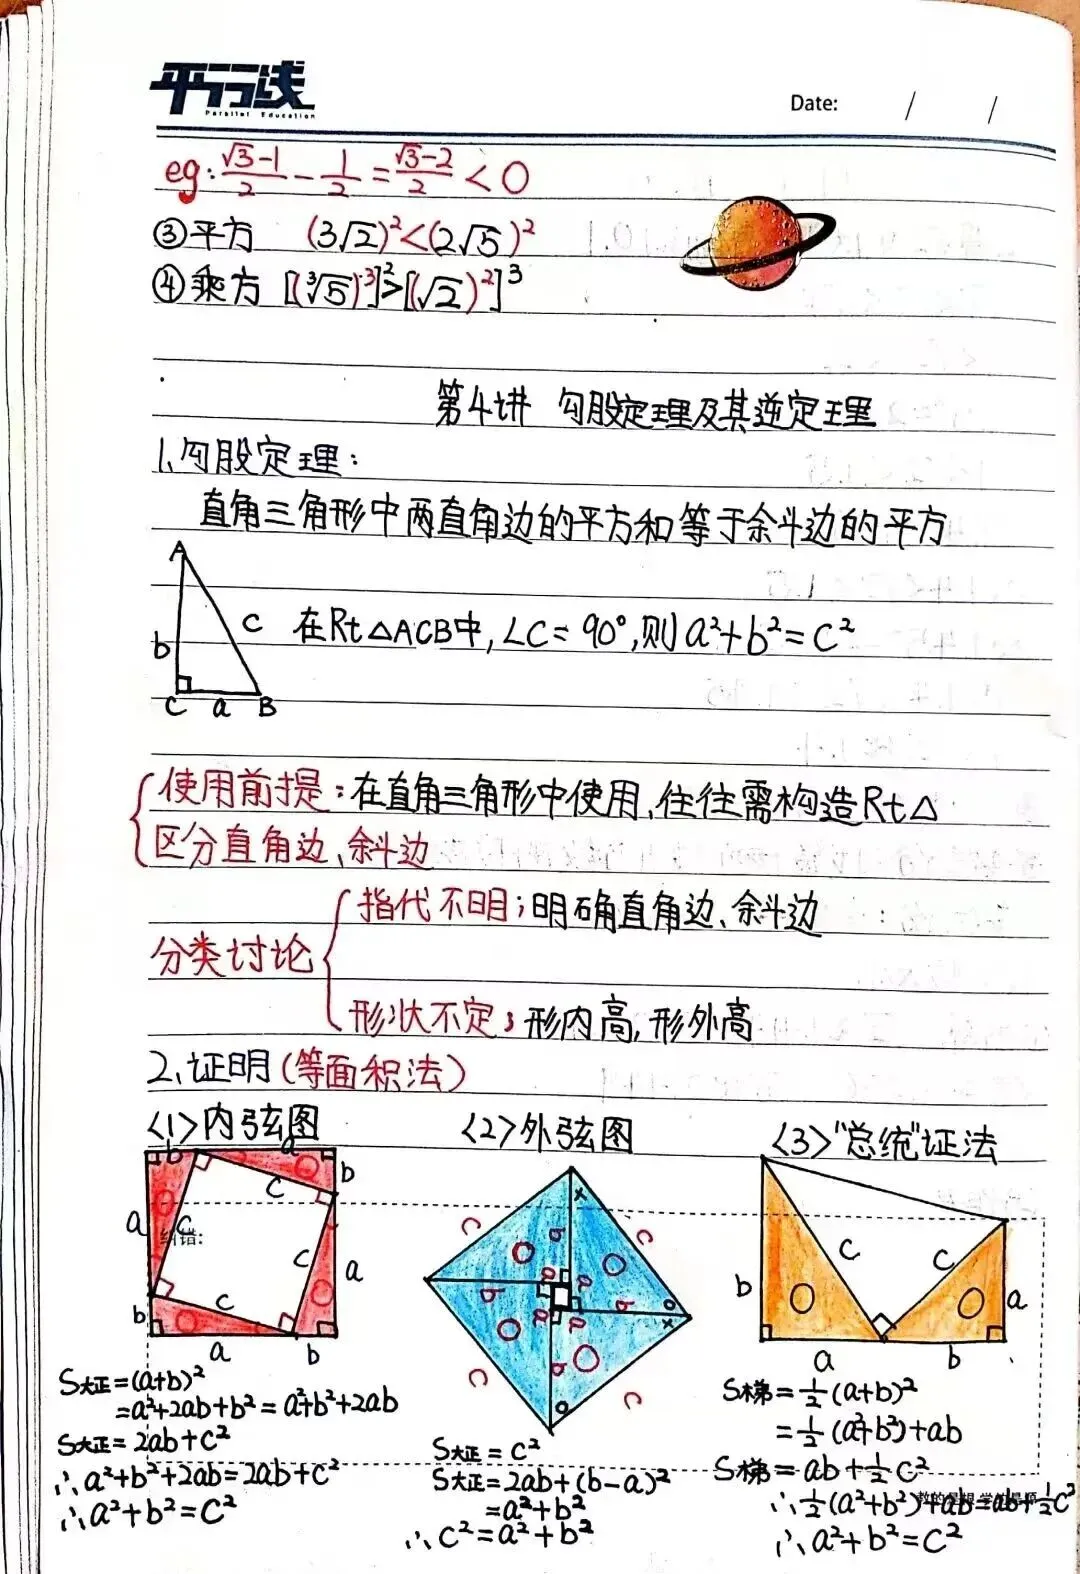 平行线
Parallel Education
Date: / /
eg: (√3-1)/2 - 1/2 = (√3-2)/2 < 0
③平方 (3√2)²<(2√5)²
④乘方 [(³√5)³]²>[(√2)²]³
第4讲 勾股定理及其逆定理
1、勾股定理:
直角三角形中两直角边的平方和等于斜边的平方
A
b c
C a B
在Rt△ACB中,∠C=90°,则a²+b²=c²
使用前提:在直角三角形中使用,往往需构造Rt△
区分直角边、斜边
分类讨论
指代不明;明确直角边、斜边
形状不定;形内高,形外高
2、证明(等面积法)
<1>内弦图
b a
b
c
a c
纠错:
c a
c
b
a b
S大正=(a+b)²
=a²+2ab+b²=a²+b²+2ab
S大正=2ab+c²
∴a²+b²+2ab=2ab+c²
∴a²+b²=c²
<2>外弦图
x
c c
b
a a
b b
a a
o
x
b
c c
o
S大正=c²
S大正=2ab+(b-a)²
=a²+b²
∴c²=a²+b²
<3>"总统"证法
c c
b a
a b
S梯=½(a+b)²
=½(a²+b²)+ab
S梯=ab+½c²
∴½(a²+b²)+ab=ab+½c²
∴a²+b²=c²